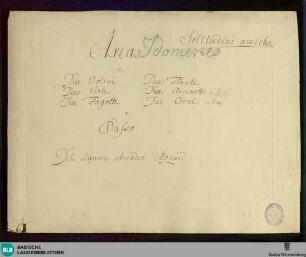 Solitudini amiche
Aria Idomeneo
a
Due Violini Due Flauti
Due Viole Due Clarinetti
Due Fagotti Due Corni
e
Basso
Del Signore Amadeo Mozard
BLB BADISCHE
LANDESBIBLIOTHEK
Baden-Württemberg